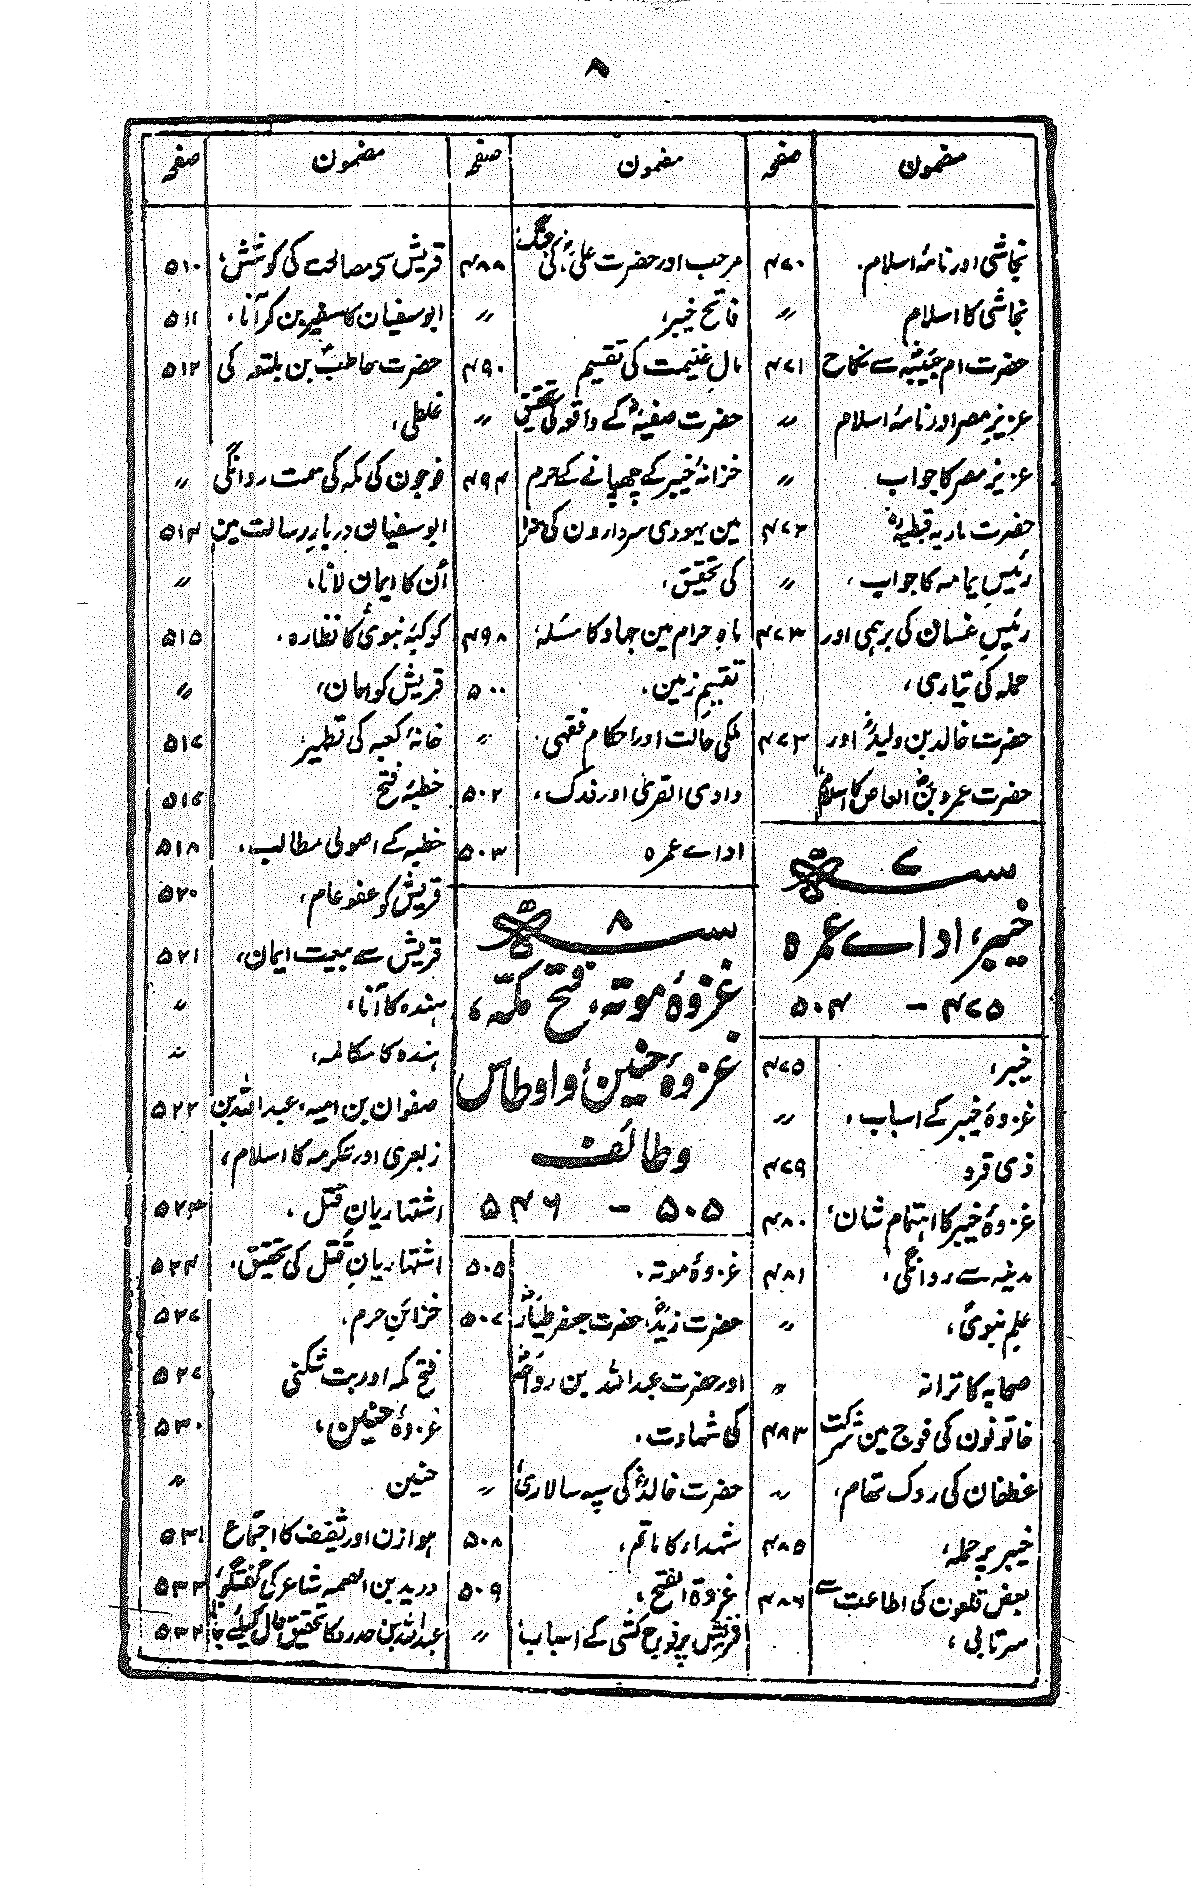 ۸
مضمون صفحہ
نجاشی اور نامۂ اسلام۔ ۴۷۰
نجاشی کا اسلام 〃
حضرت ام حبیبہؓ سے نکاح ۴۷۱
عزیزِ مصر اور نامۂ اسلام 〃
عزیز مصر کا جواب 〃
حضرت ماریہ قبطیہؓ ۴۷۲
رئیسِ یمامہ کا جواب، 〃
رئیسِ غسان کی برہمی اور ۴۷۳
حملہ کی تیاری،
حضرت خالد بن ولیدؓ اور ۴۷۳
حضرت عمرو بن العاصؓ کا اسلام
سنہ ۷ ھ
خیبر، اداے عمرہ
۴۷۵ - ۵۰۴
خیبر، ۴۷۵
غزوۂ خیبر کے اسباب، 〃
ذی قرد ۴۷۹
غزوۂ خیبر کا اہتمام شان، ۴۸۰
مدینہ سے روانگی، ۴۸۱
علم نبویؐ، 〃
صحابہ کا ترانہ 〃
خاتونون کی فوج مین شرکت ۴۸۳
غطفان کی روک تھام، 〃
خیبر پر حملہ، ۴۸۵
بعض قلعون کی اطاعت سے ۴۸۶
سرتابی،
مضمون صفحہ
مرحب اور حضرت علیؓ کی جنگ، ۴۸۸
فاتح خیبر، 〃
مالِ غنیمت کی تقسیم ۴۹۰
حضرت صفیہؓ کے واقعہ کی تحقیق 〃
خزانۂ خیبر کے چھپانے کے جرم ۴۹۴
مین یہودی سردارون کی سزا
کی تحقیق،
ماہِ حرام مین جہاد کا مسئلہ، ۴۹۸
تقسیم زمین، ۵۰۰
ملکی حالت اور احکام فقہی، 〃
وادی القریٰ اور فدک، ۵۰۲
اداے عمرہ ۵۰۳
سنہ ۸ ھ
غزوۂ موتہ، فتح مکّہ،
غزوۂ حنین، و اوطاس
و طائف
۵۰۵ - ۵۴۶
غزوۂ موتہ، ۵۰۵
حضرت زیدؓ، حضرت جعفر طیّارؓ ۵۰۷
اور حضرت عبداللہ بن رواحہؓ
کی شہادت،
حضرت خالدؓ کی سپہ سالاری، 〃
شہداء کا ماتم، ۵۰۸
غزوۃ الفتح، ۵۰۹
قریش پر فوج کشی کے اسباب، 〃
مضمون صفحہ
قریش کی مصالحت کی کوشش، ۵۱۰
ابوسفیان کا سفیر بن کر آنا، ۵۱۱
حضرت حاطبؓ بن بلتعہ کی ۵۱۲
غلطی،
فوجون کی مکہ کی سمت روانگی 〃
ابوسفیان دربارِ رسالت مین ۵۱۴
اُن کا ایمان لانا، 〃
کوکبۂ نبویؐ کا نظارہ، ۵۱۵
قریش کو امان، 〃
خانۂ کعبہ کی تطہیر، ۵۱۶
خطبۂ فتح ۵۱۶
خطبہ کے اصولی مطالب، ۵۱۸
قریش کو عفو عام، ۵۲۰
قریش سے بیعت ایمان، ۵۲۱
ہندہ کا آنا، 〃
ہندہ کا مکالمہ، 〃
صفوان بن امیہ، عبداللہ بن ۵۲۲
زبعری اور عکرمہ کا اسلام،
اشتہاریانِ قتل، ۵۲۳
اشتہاریانِ قتل کی تحقیق، ۵۲۴
خزائنِ حرم، ۵۲۷
فتح مکہ اور بت شکنی ۵۲۷
غزوۂ حنین، ۵۳۰
حنین 〃
ہوازن اور ثقیف کا اجتماع ۵۳۱
درید بن الصمہ شاعر کی گفتگو، ۵۳۲
عبداللہ بن حدرد کا تحقیق حال کیلئے جانا ۵۳۲